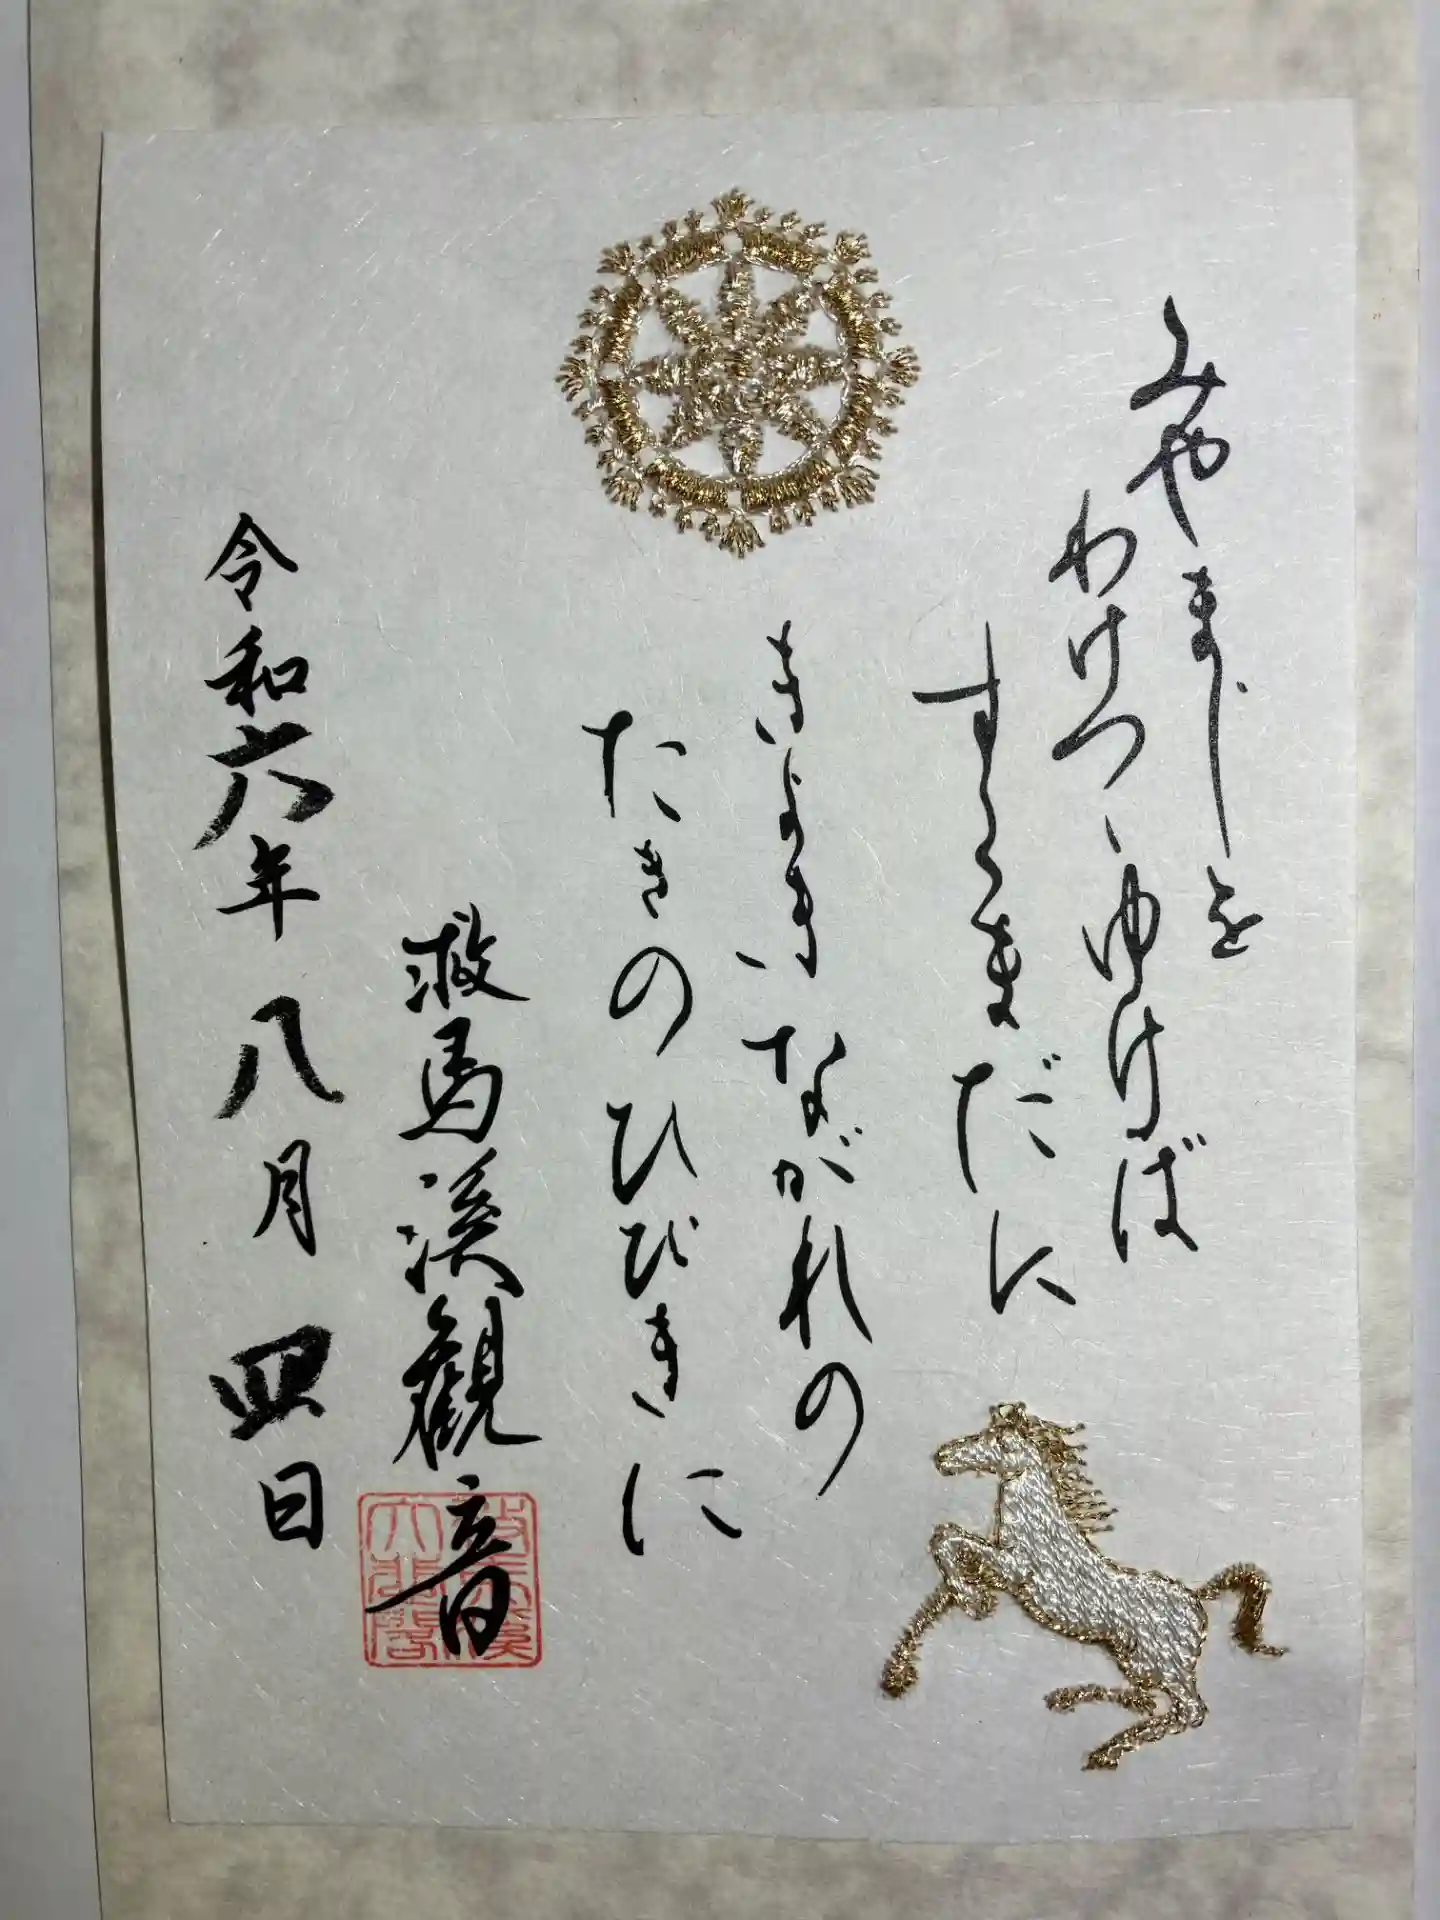 みやまじを
わけつゝゆけば
すくまだに
きよきながれの
たきのひびきに
救馬溪觀音
令和六年八月四日